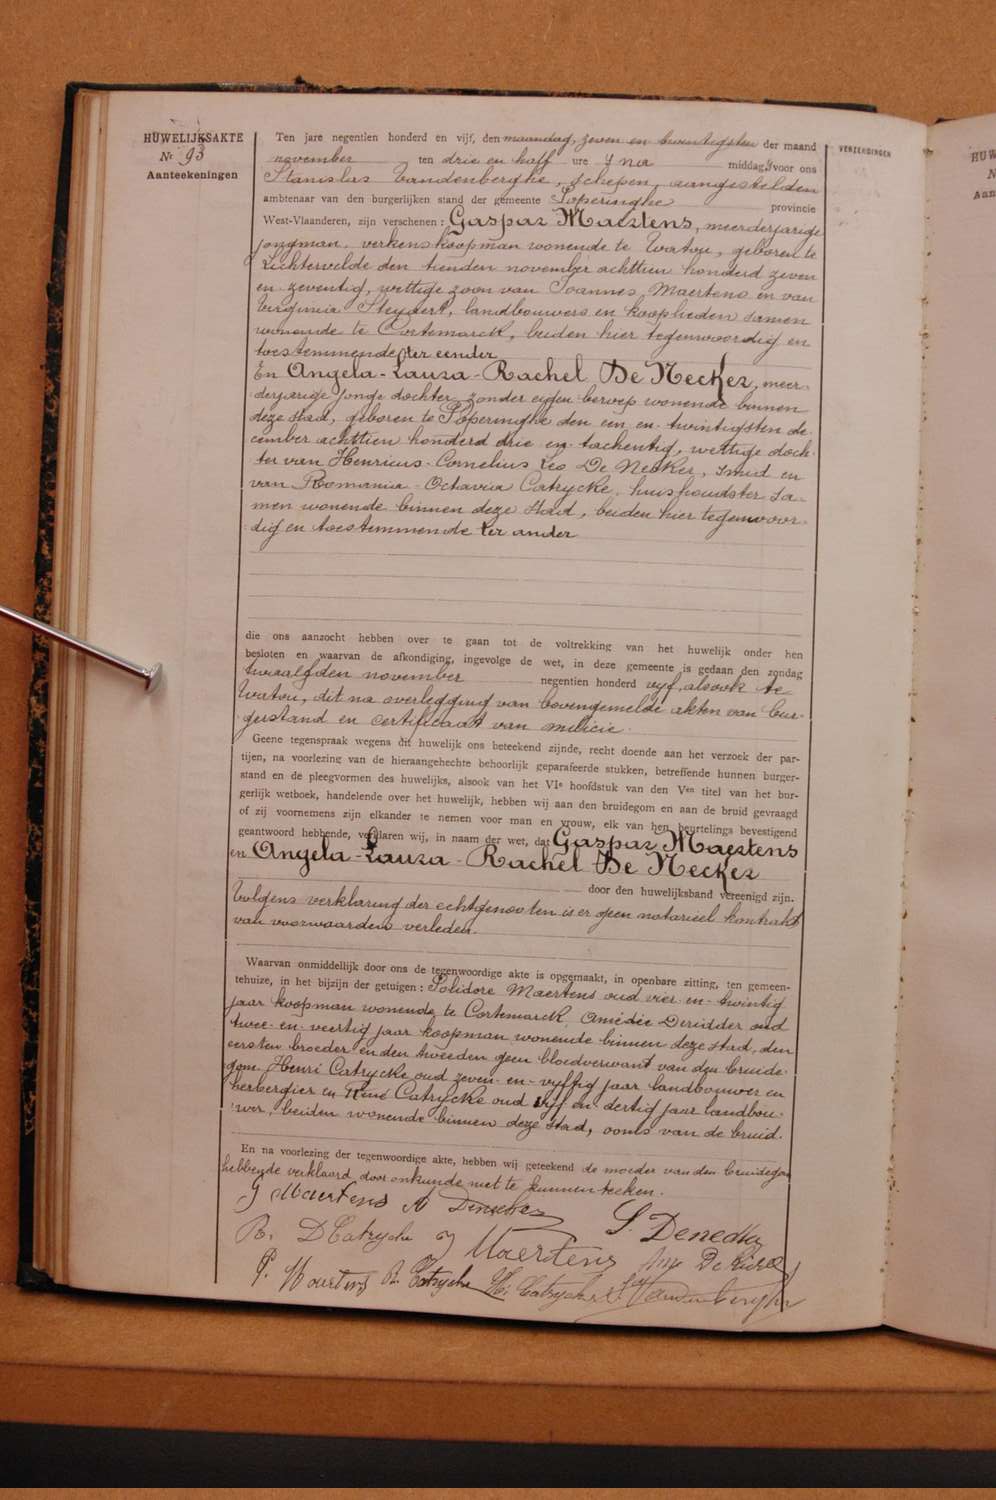 HUWELIJKSAKTE
Nr 93
Aanteekeningen
VERZENDINGEN
Ten jare negentien honderd en vijf, den maandag, zeven en twintigsten der maand
november ten drie en half ure na middag, voor ons
Stanislas Vandenberghe, schepen, aangestelden
ambtenaar van den burgerlijken stand der gemeente Poperinghe provincie
West-Vlaanderen, zijn verschenen: Gaspar Maertens, meerderjarige
jongman, verkenskoopman wonende te Watou, geboren te
Lichtervelde den tienden november achttien honderd zeven
en zeventig, wettige zoon van Joannes Maertens en van
Virginia Steyaert, landbouwers en kooplieden samen
wonende te Cortemarck, beiden hier tegenwoordig en
toestemmende ter eender
En Angela-Laura-Rachel De Necker, meer-
derjarige jonge dochter, zonder eigen beroep wonende binnen
deze stad, geboren te Poperinghe den een en twintigsten de-
cember achttien honderd drie en tachentig, wettige doch-
ter van Henricus-Cornelius Leo De Necker, smid en
van Romania-Octavia Catrycke, huishoudster sa-
men wonende binnen deze stad, beiden hier tegenwoor-
dig en toestemmende ter ander
die ons aanzocht hebben over te gaan tot de voltrekking van het huwelijk onder hen
besloten en waarvan de afkondiging, ingevolge de wet, in deze gemeente is gedaan den zondag
twaalfden november negentien honderd vijf, alsook te
Watou, dit na overlegging van bovengemelde akten van bur-
gerstand en certificaat van milicie.
Geene tegenspraak wegens dit huwelijk ons beteekend zijnde, recht doende aan het verzoek der par-
tijen, na voorlezing van de hieraangehechte behoorlijk geparafeerde stukken, betreffende hunnen burger-
stand en de pleegvormen des huwelijks, alsook van het VIe hoofdstuk van den Ven titel van het bur-
gerlijk wetboek, handelende over het huwelijk, hebben wij aan den bruidegom en aan de bruid gevraagd
of zij voornemens zijn elkander te nemen voor man en vrouw, elk van hen beurtelings bevestigend
geantwoord hebbende, verklaren wij, in naam der wet, dat Gaspar Maertens
en Angela-Laura-Rachel De Necker
door den huwelijksband vereenigd zijn.
Volgens verklaring der echtgenooten is er geen notarieel kontrakt
van voorwaarden verleden.
Waarvan onmiddellijk door ons de tegenwoordige akte is opgemaakt, in openbare zitting, ten gemeen-
tehuize, in het bijzijn der getuigen: Polidore Maertens oud vier-en-twintig
jaar koopman wonende te Cortemarck, Amedée Deridder oud
twee-en-veertig jaar koopman wonende binnen deze stad, den
eersten broeder en den tweeden geen bloedverwant van den bruide-
gom Henri Catrycke oud zeven-en-vijftig jaar landbouwer en
herbergier en René Catrycke oud vijf en dertig jaar landbou-
wer, beiden wonende binnen deze stad, ooms van de bruid.
En na voorlezing der tegenwoordige akte, hebben wij geteekend de moeder van den bruidegom
hebbende verklaard door onkunde niet te kunnen teeken.
G Maertens A Denecker
L. Denecker
R. O Catrycke J Maertens Am De Ridder
P. Maertens R. Catrycke Hi Catrycke St Vandenberghe